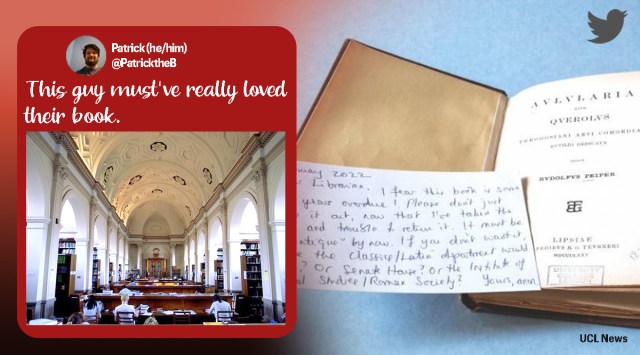 Patrick (he/him)
@PatricktheB
This guy must've really loved
their book.
may 2022
Librarian. I fear this book is some
years overdue! Please don't just
it out, now that I've taken the
and trouble to return it. It must be
by now. If you don't want it,
the Classics/Latin department would
? Or Senate House? Or the Institute of
Studies/Roman Society? Yours, anon
AVLVLARIA
SIVE
QVEROLVS
THEODOSIANI AEVI COMOEDIA
RVTILIO DEDICATA
EDIDIT
RVDOLFVS PEIPER
LIPSIAE
IN AEDIBVS B G TEVBNERI
MDCCCLXXV
UCL News